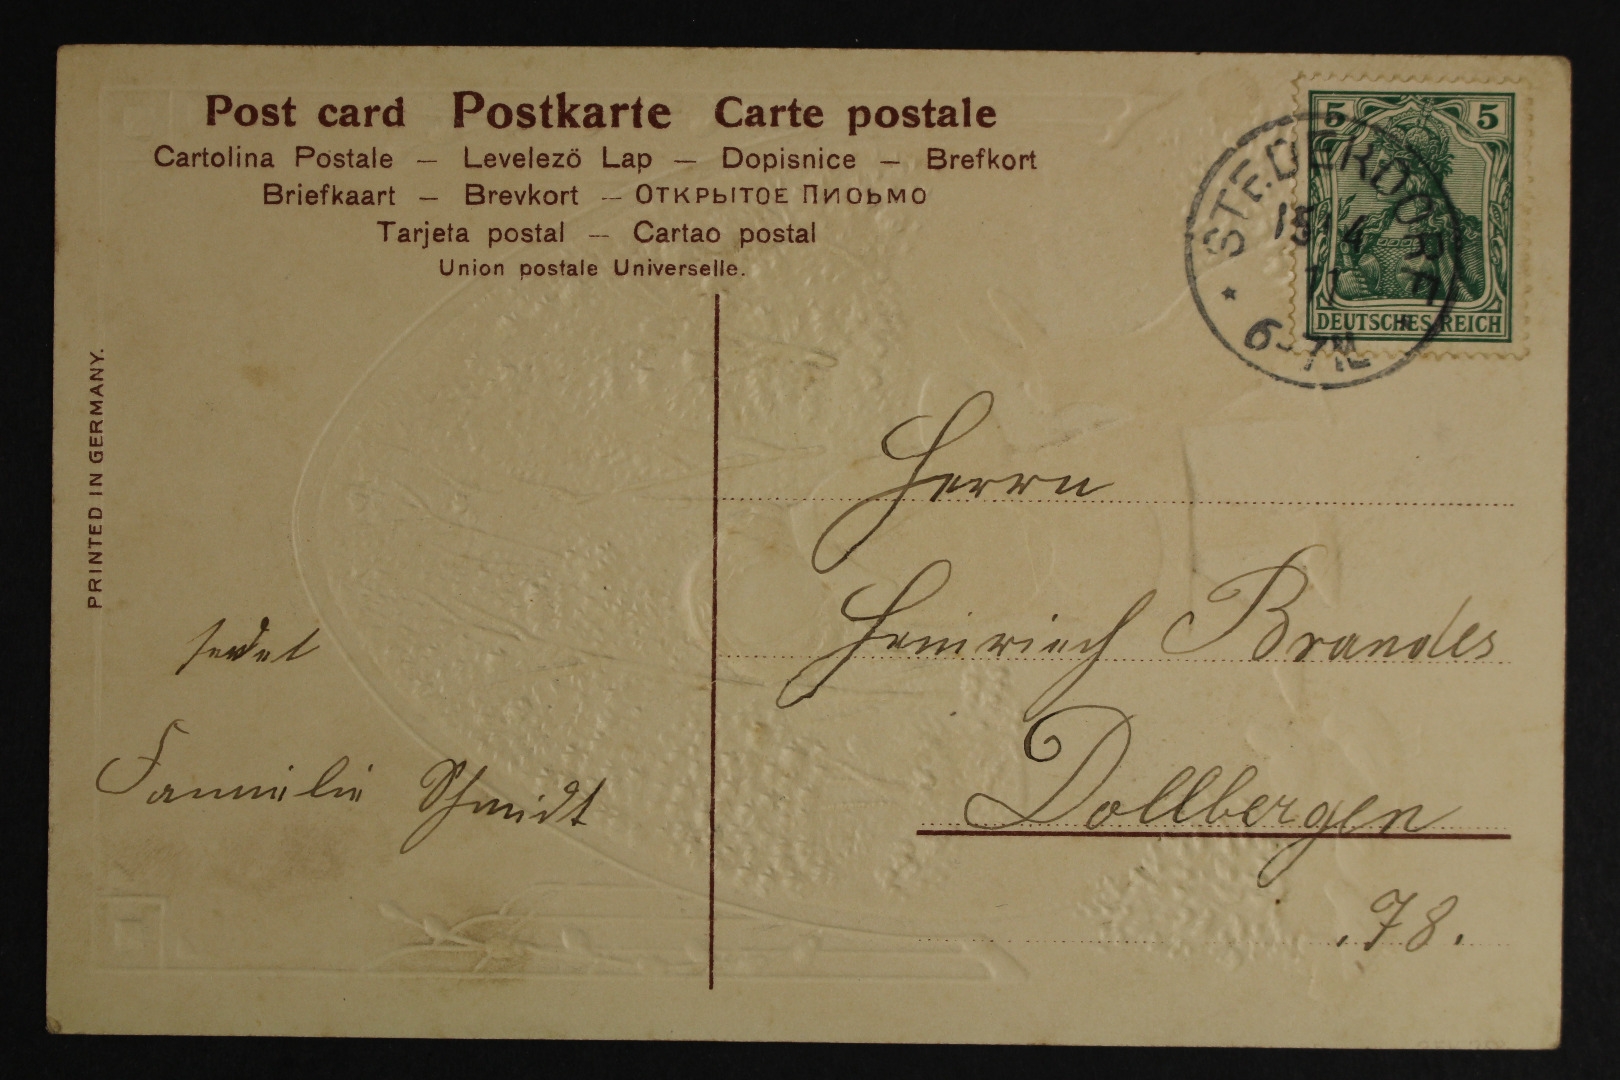 Post card Postkarte Carte postale
Cartolina Postale – Levelezö Lap – Dopisnice – Brefkort
Briefkaart – Brevkort – ОТКРЫТОЕ ПИОЬМО
Tarjeta postal – Cartao postal
Union postale Universelle.
PRINTED IN GERMANY.
5 5
DEUTSCHES REICH
STEDERDORF
15 4
11
* 6-7N
Herrn
Heinriech Brandes
Dollbergen
.78.
sendet
Fammilie Schmidt